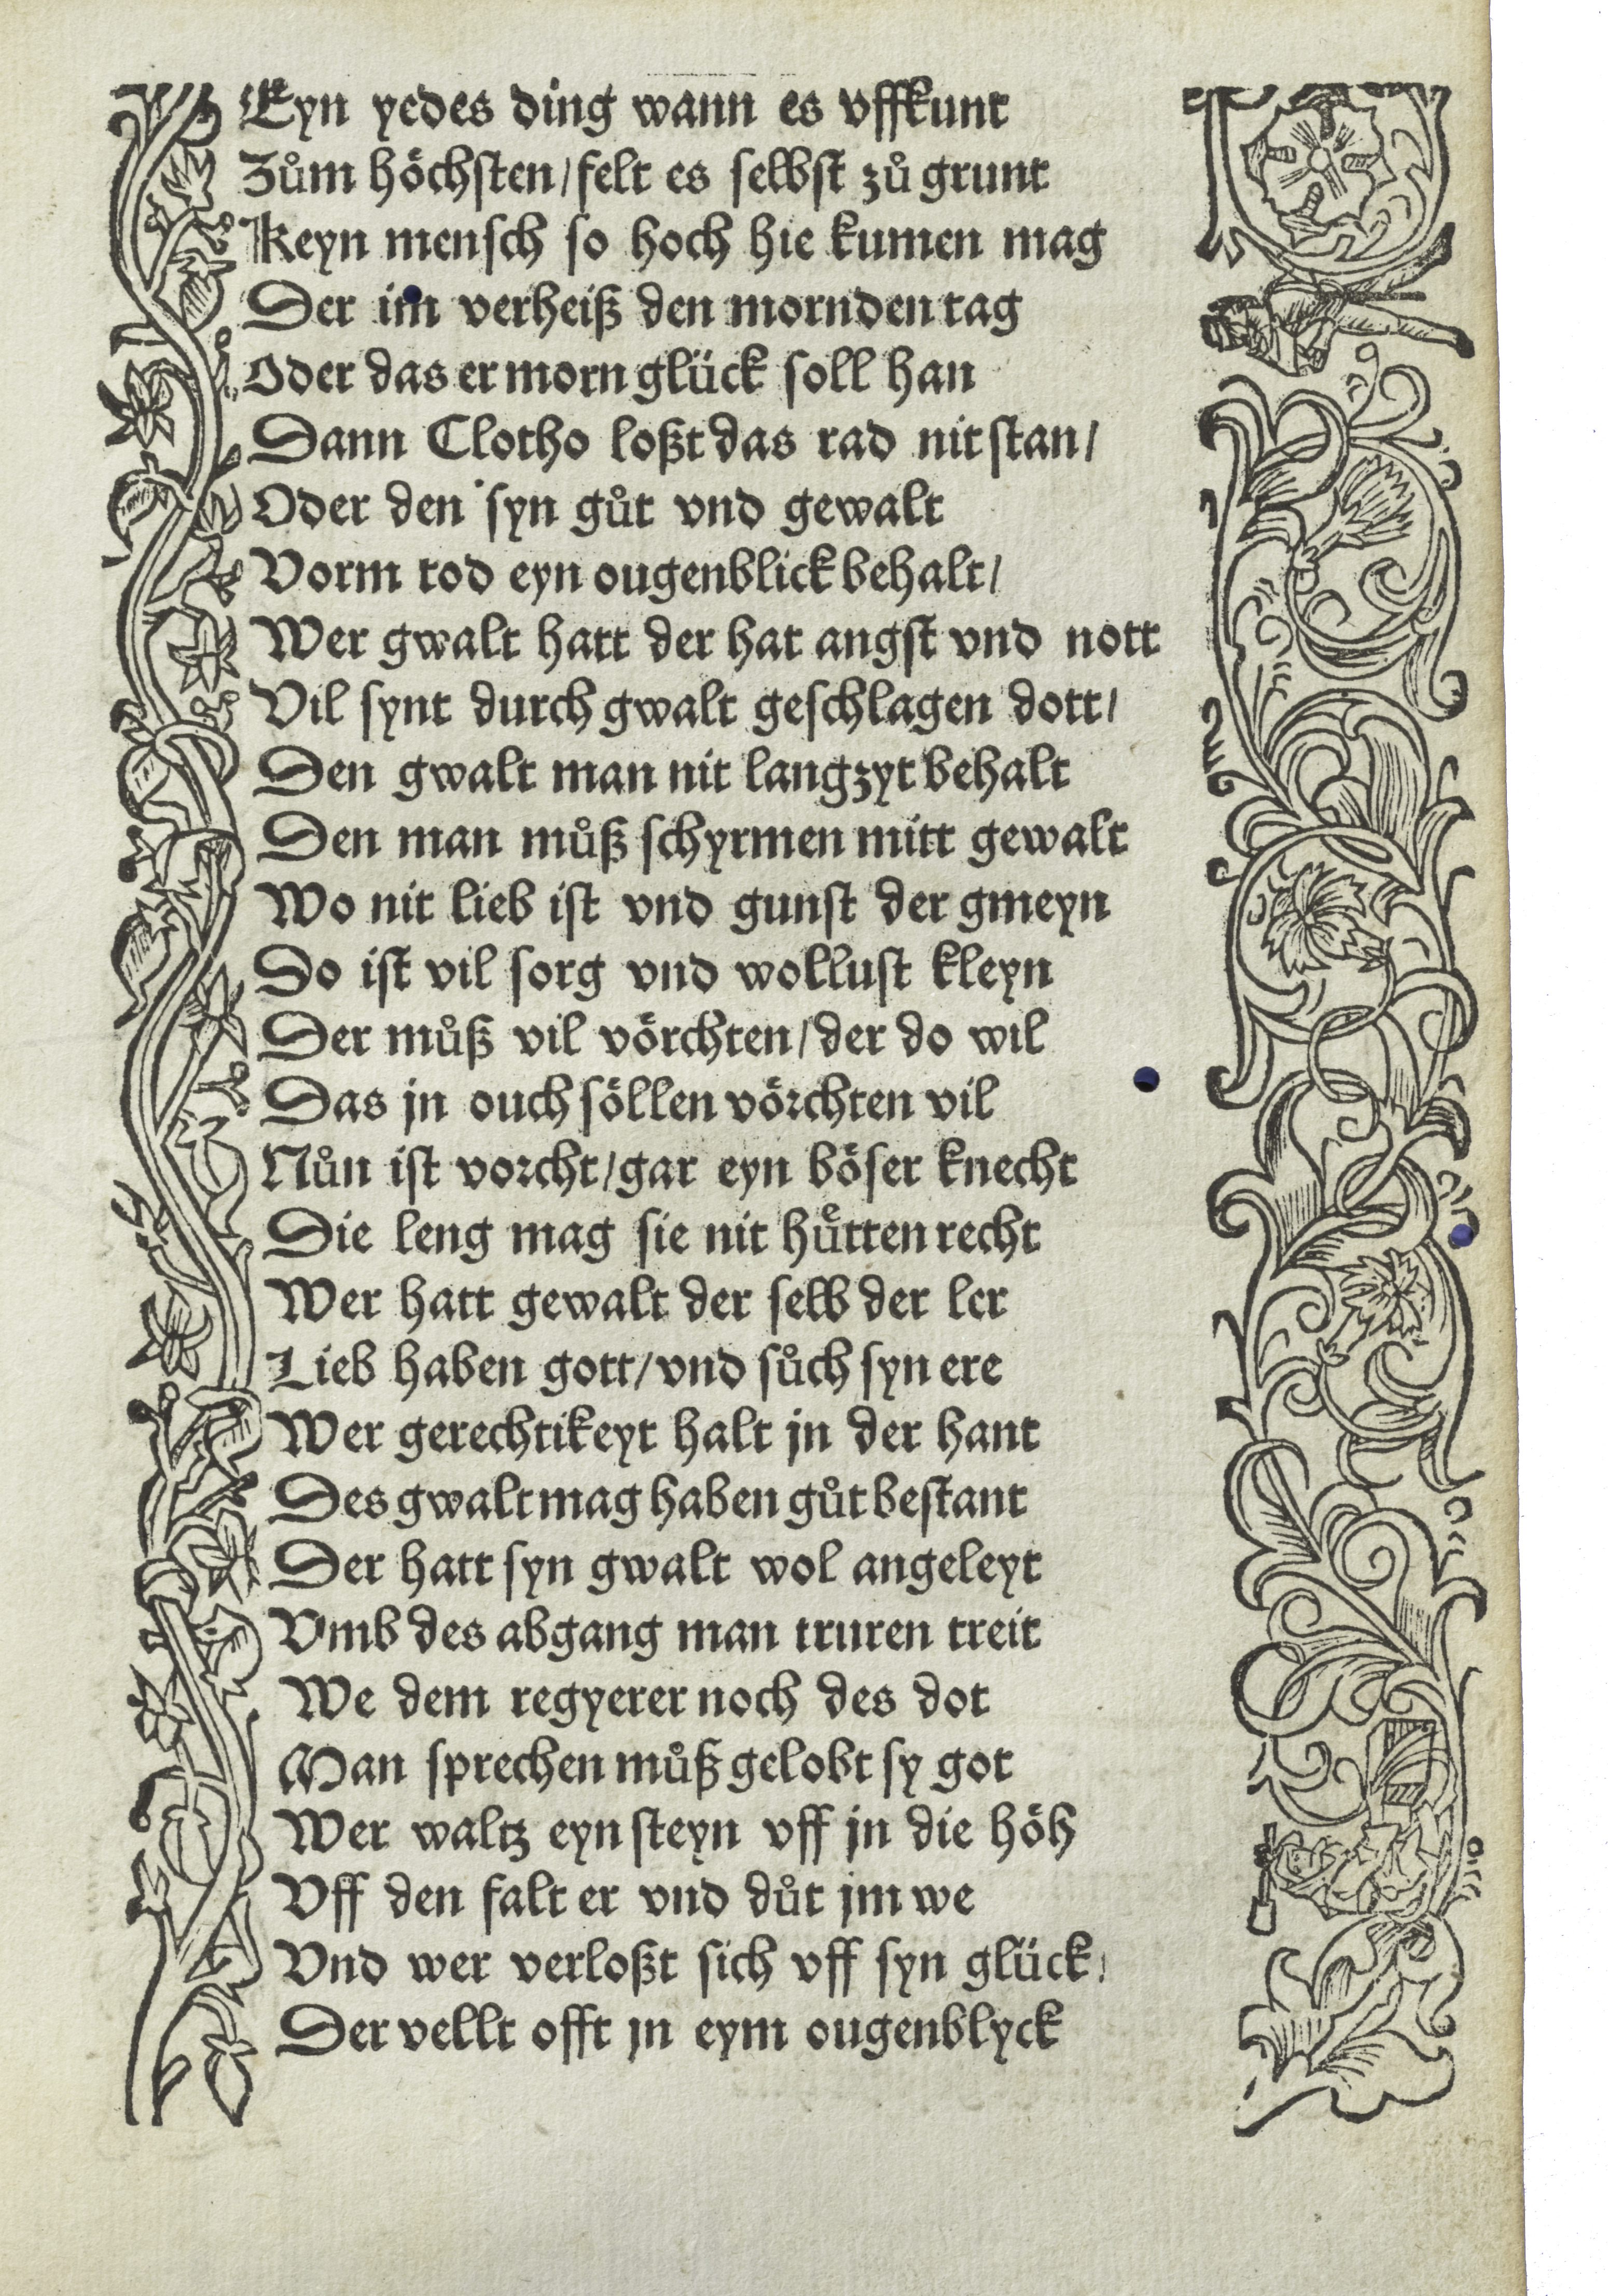 Eyn yedes ding wann es vffkunt
Zům höchsten/felt es selbst zů grunt
Keyn mensch so hoch hie kumen mag
Der im verheiß den mornden tag
Oder das er morn glück soll han
Dann Clotho loßt das rad nit stan/
Oder den syn gůt vnd gewalt
Vorm tod eyn ougenblick behalt/
Wer gwalt hatt der hat angst vnd nott
Vil synt durch gwalt geschlagen dott/
Den gwalt man nit langzyt behalt
Den man můß schyrmen mitt gewalt
Wo nit lieb ist vnd gunst der gmeyn
Do ist vil sorg vnd wollust kleyn
Der můß vil vörchten/der do wil
Das jn ouch söllen vörchten vil
Nůn ist vorcht/gar eyn böser knecht
Die leng mag sie nit hütten recht
Wer hatt gewalt der selb der ler
Lieb haben gott/vnd sůch syn ere
Wer gerechtikeyt halt jn der hant
Des gwalt mag haben gůt bestant
Der hatt syn gwalt wol angeleyt
Vmb des abgang man truren treit
We dem regyerer noch des dot
Man sprechen můß gelobt sy got
Wer waltz eyn steyn vff jn die höh
Vff den falt er vnd důt jm we
Vnd wer verloßt sich vff syn glück/
Der vellt offt jn eym ougenblyck